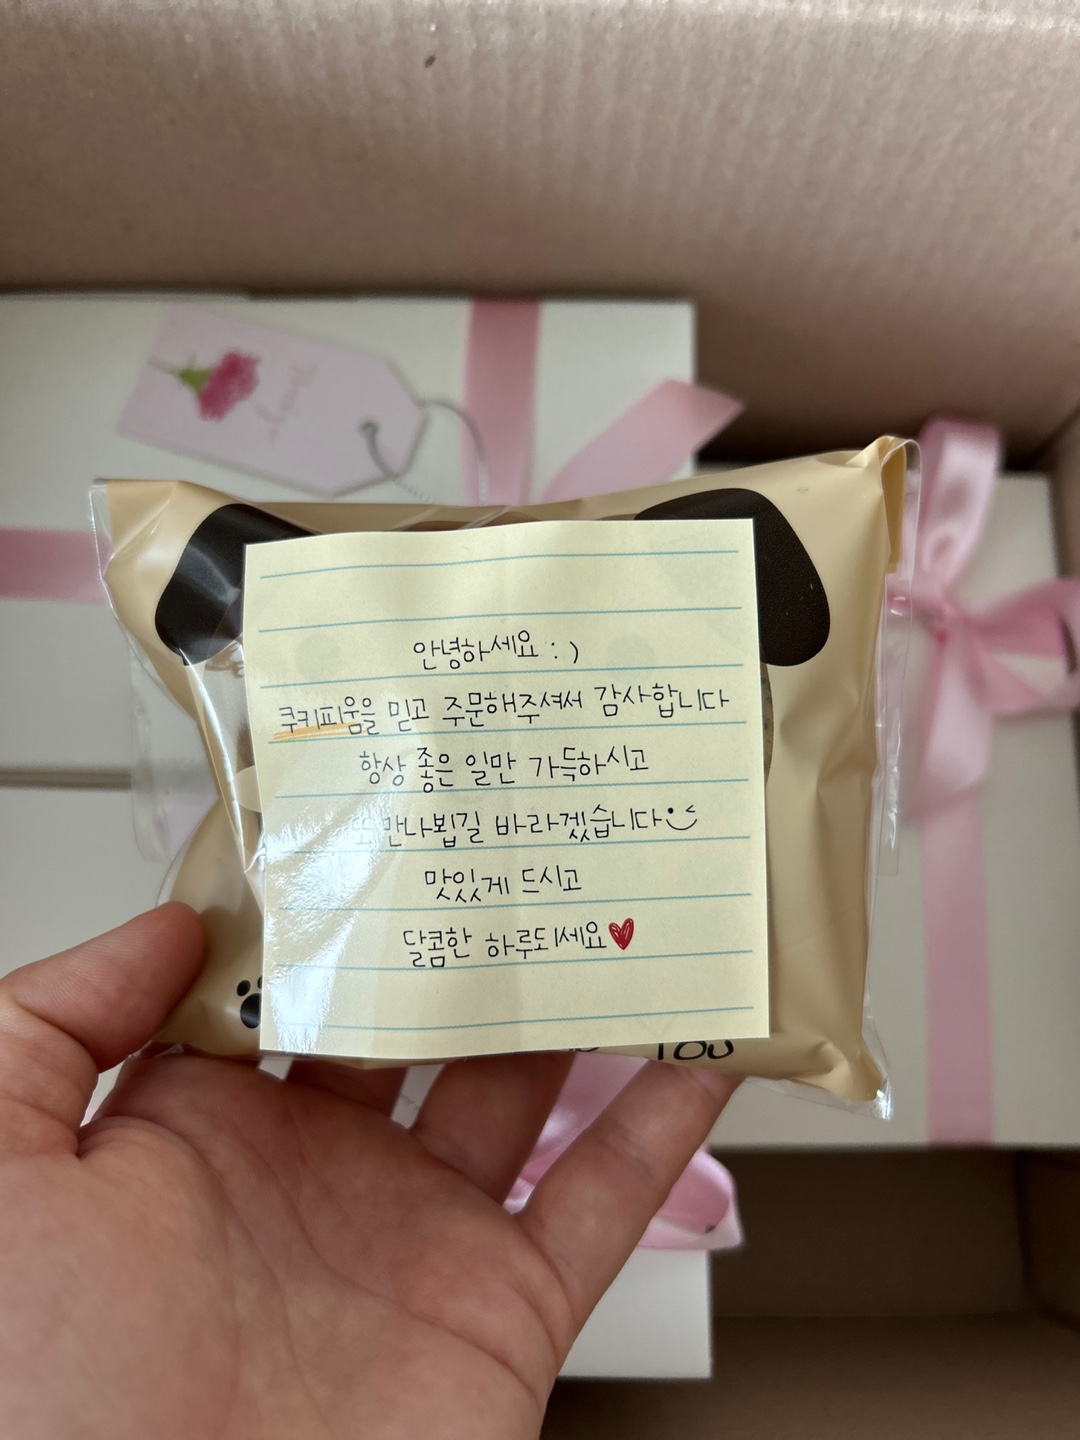 Love
안녕하세요 : )
쿠키피움을 믿고 주문해주셔서 감사합니다
항상 좋은 일만 가득하시고
또 만나뵙길 바라겠습니다
맛있게 드시고
달콤한 하루되세요
YOU